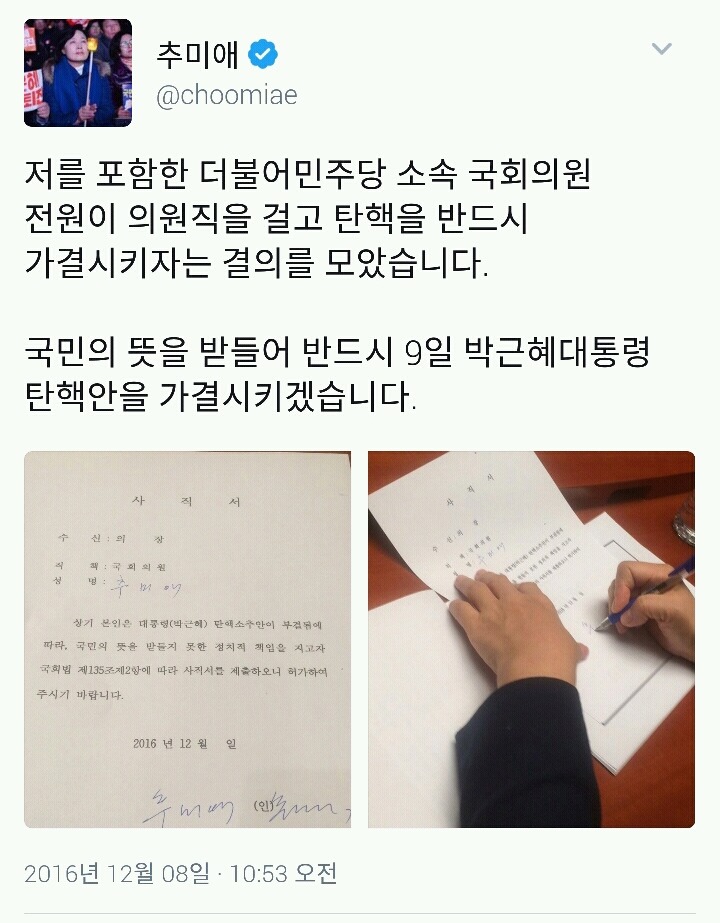 추미애
@choomiae
저를 포함한 더불어민주당 소속 국회의원
전원이 의원직을 걸고 탄핵을 반드시
가결시키자는 결의를 모았습니다.
국민의 뜻을 받들어 반드시 9일 박근혜대통령
탄핵안을 가결시키겠습니다.
사 직 서
수 신 : 의 장
직 책 : 국 회 의 원
성 명 : 추 미 애
상기 본인은 대통령(박근혜) 탄핵소추안이 부결됨에
따라, 국민의 뜻을 받들지 못한 정치적 책임을 지고자
국회법 제135조제2항에 따라 사직서를 제출하오니 허가하여
주시기 바랍니다.
2016 년 12 월 일
추 미 애 (인)
사 직 서
수 신 : 의 장
직 책 : 국 회 의 원
추 미 애
2016년 12월 08일 · 10:53 오전